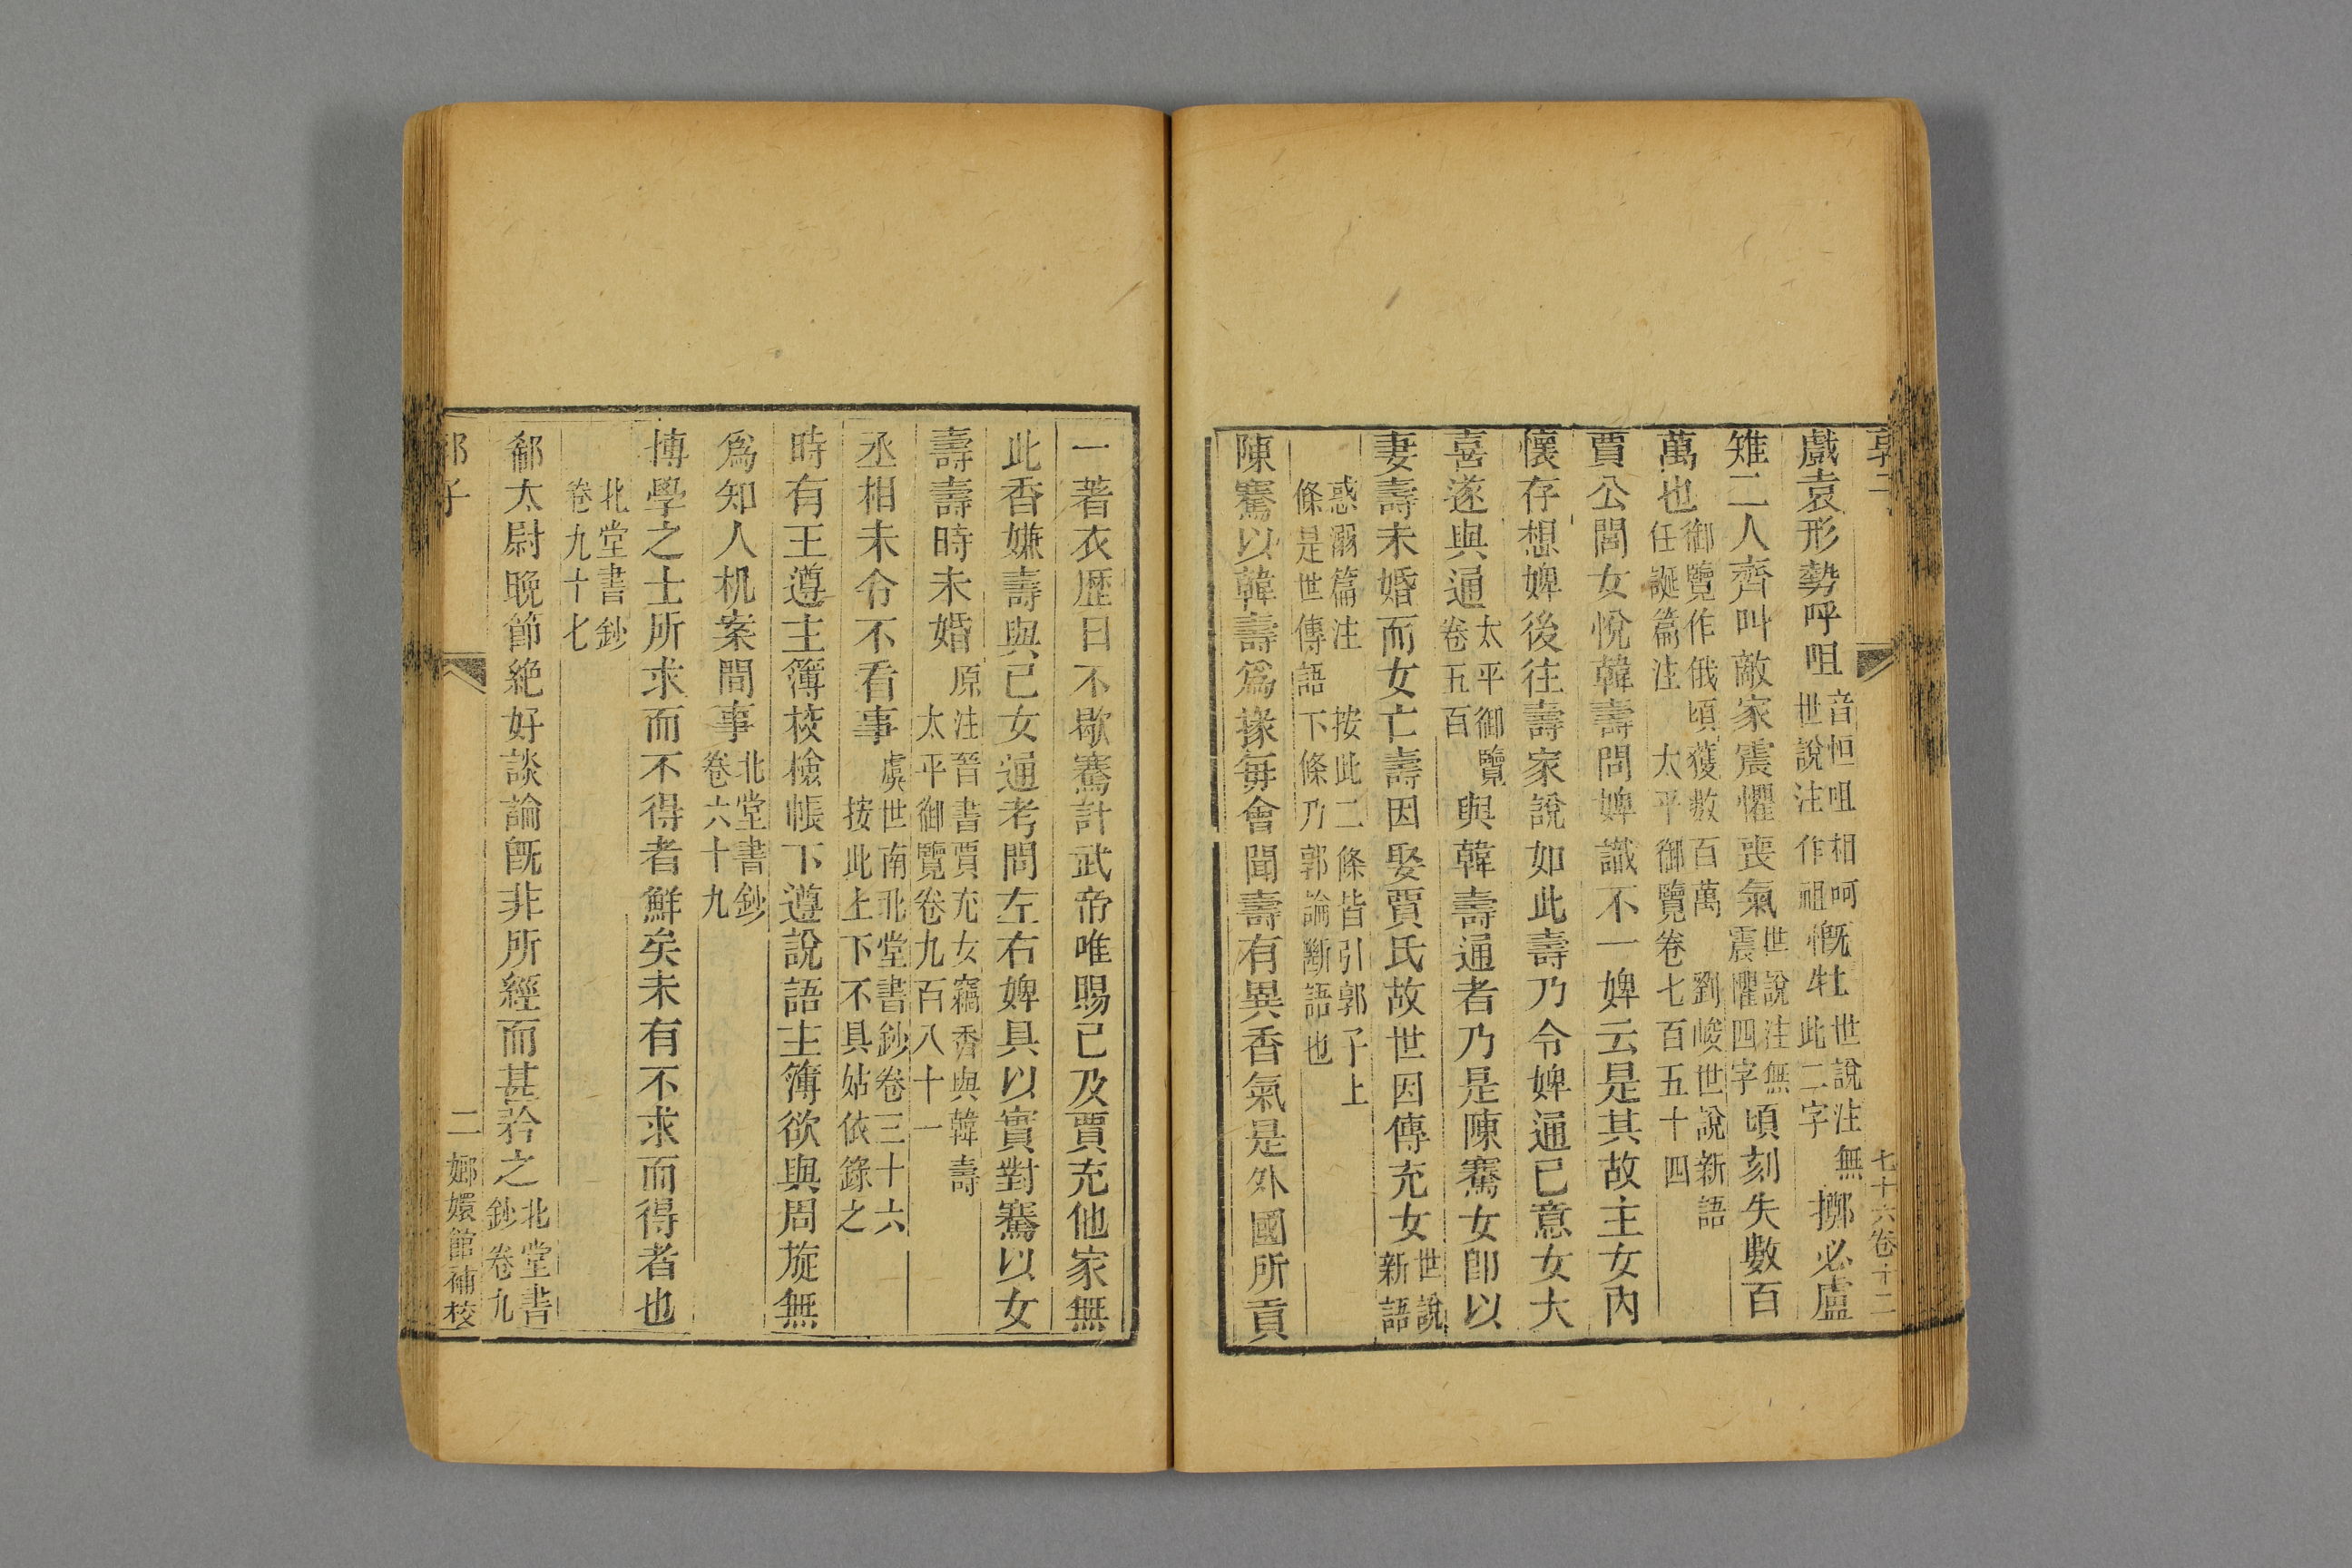 郭子 七十六卷十二
戲袁形勢呼咀音恒咀相呵世說注作祖慨牡世說注無此二字擲必盧
雉二人齊叫敵家震懼喪氣世說注無震懼四字頃刻失數百
萬也御覽作俄頃獲数百萬 劉峻世說新語任誕篇注 太平御覽卷七百五十四
賈公閭女悅韓壽問婢識不一婢云是其故主女內
懷存想婢後往壽家說如此壽乃令婢通已意女大
喜遂與通太平御覽卷五百與韓壽通者乃是陳騫女卽以
妻壽未婚而女亡壽因娶賈氏故世因傳充女世說新語
惑溺篇注 按此二條皆引郭子上條是世傳語下條乃郭論斷語也
陳騫以韓壽爲掾每會聞壽有異香氣是外國所貢
一著衣歷日不歇騫計武帝唯賜已及賈充他家無
此香嫌壽與已女通考問左右婢具以實對騫以女
壽壽時未婚原注晉書賈充女竊香與韓壽 太平御覽卷九百八十一
丞相未令不看事虞世南北堂書鈔卷三十六 按此上下不具姑依錄之
時有王遵主簿校檢帳下遵說語主簿欲與周旋無
爲知人机案間事北堂書鈔卷六十九
博學之士所求而不得者鮮矣未有不求而得者也
北堂書鈔卷九十七
郗太尉晚節絶好談論旣非所經而甚矜之北堂書鈔卷九
郭子 二 嫏嬛館補校